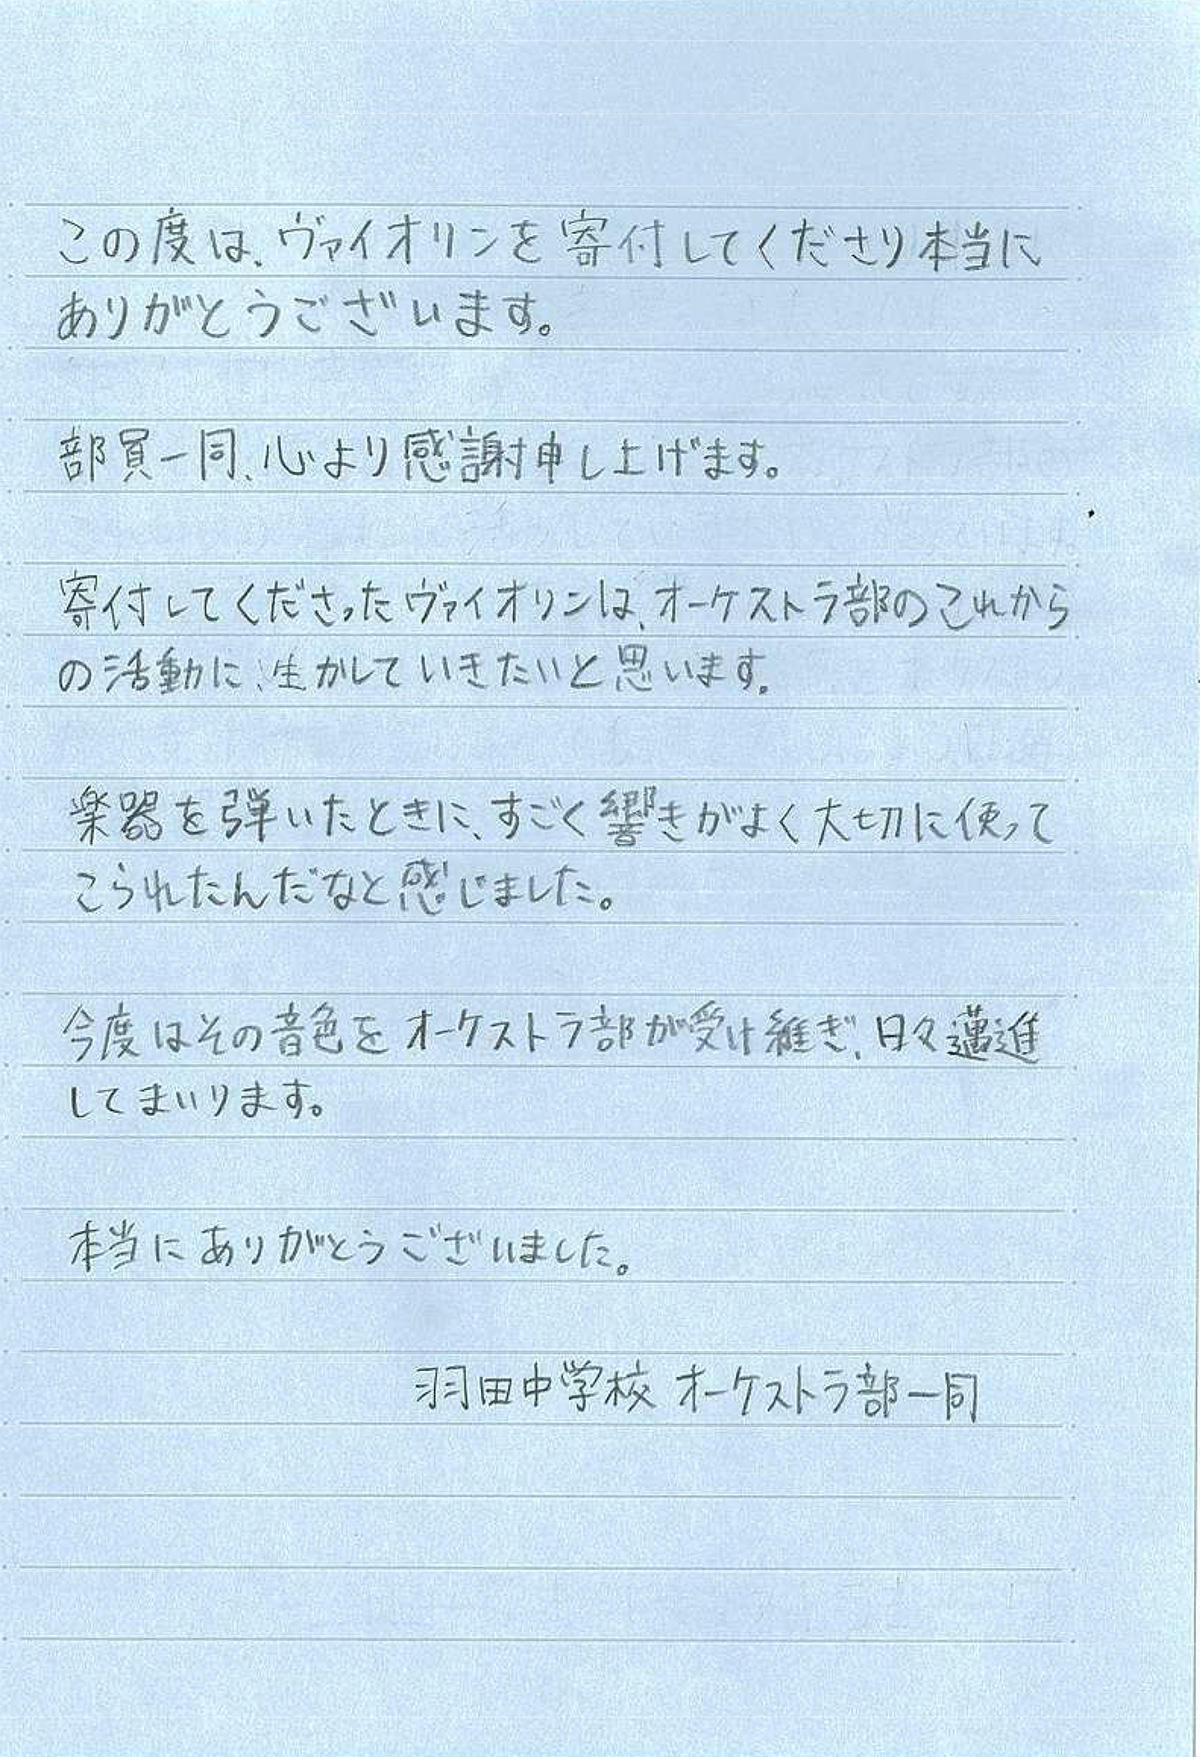 この度は、ヴァイオリンを寄付してくださり本当に
ありがとうございます。
部員一同、心より感謝申し上げます。
寄付してくださったヴァイオリンは、オーケストラ部のこれから
の活動に、生かしていきたいと思います。
楽器を弾いたときに、すごく響きがよく大切に使って
こられたんだなと感じました。
今度はその音色をオーケストラ部が受け継ぎ、日々邁進
してまいります。
本当にありがとうございました。
羽田中学校 オーケストラ部一同